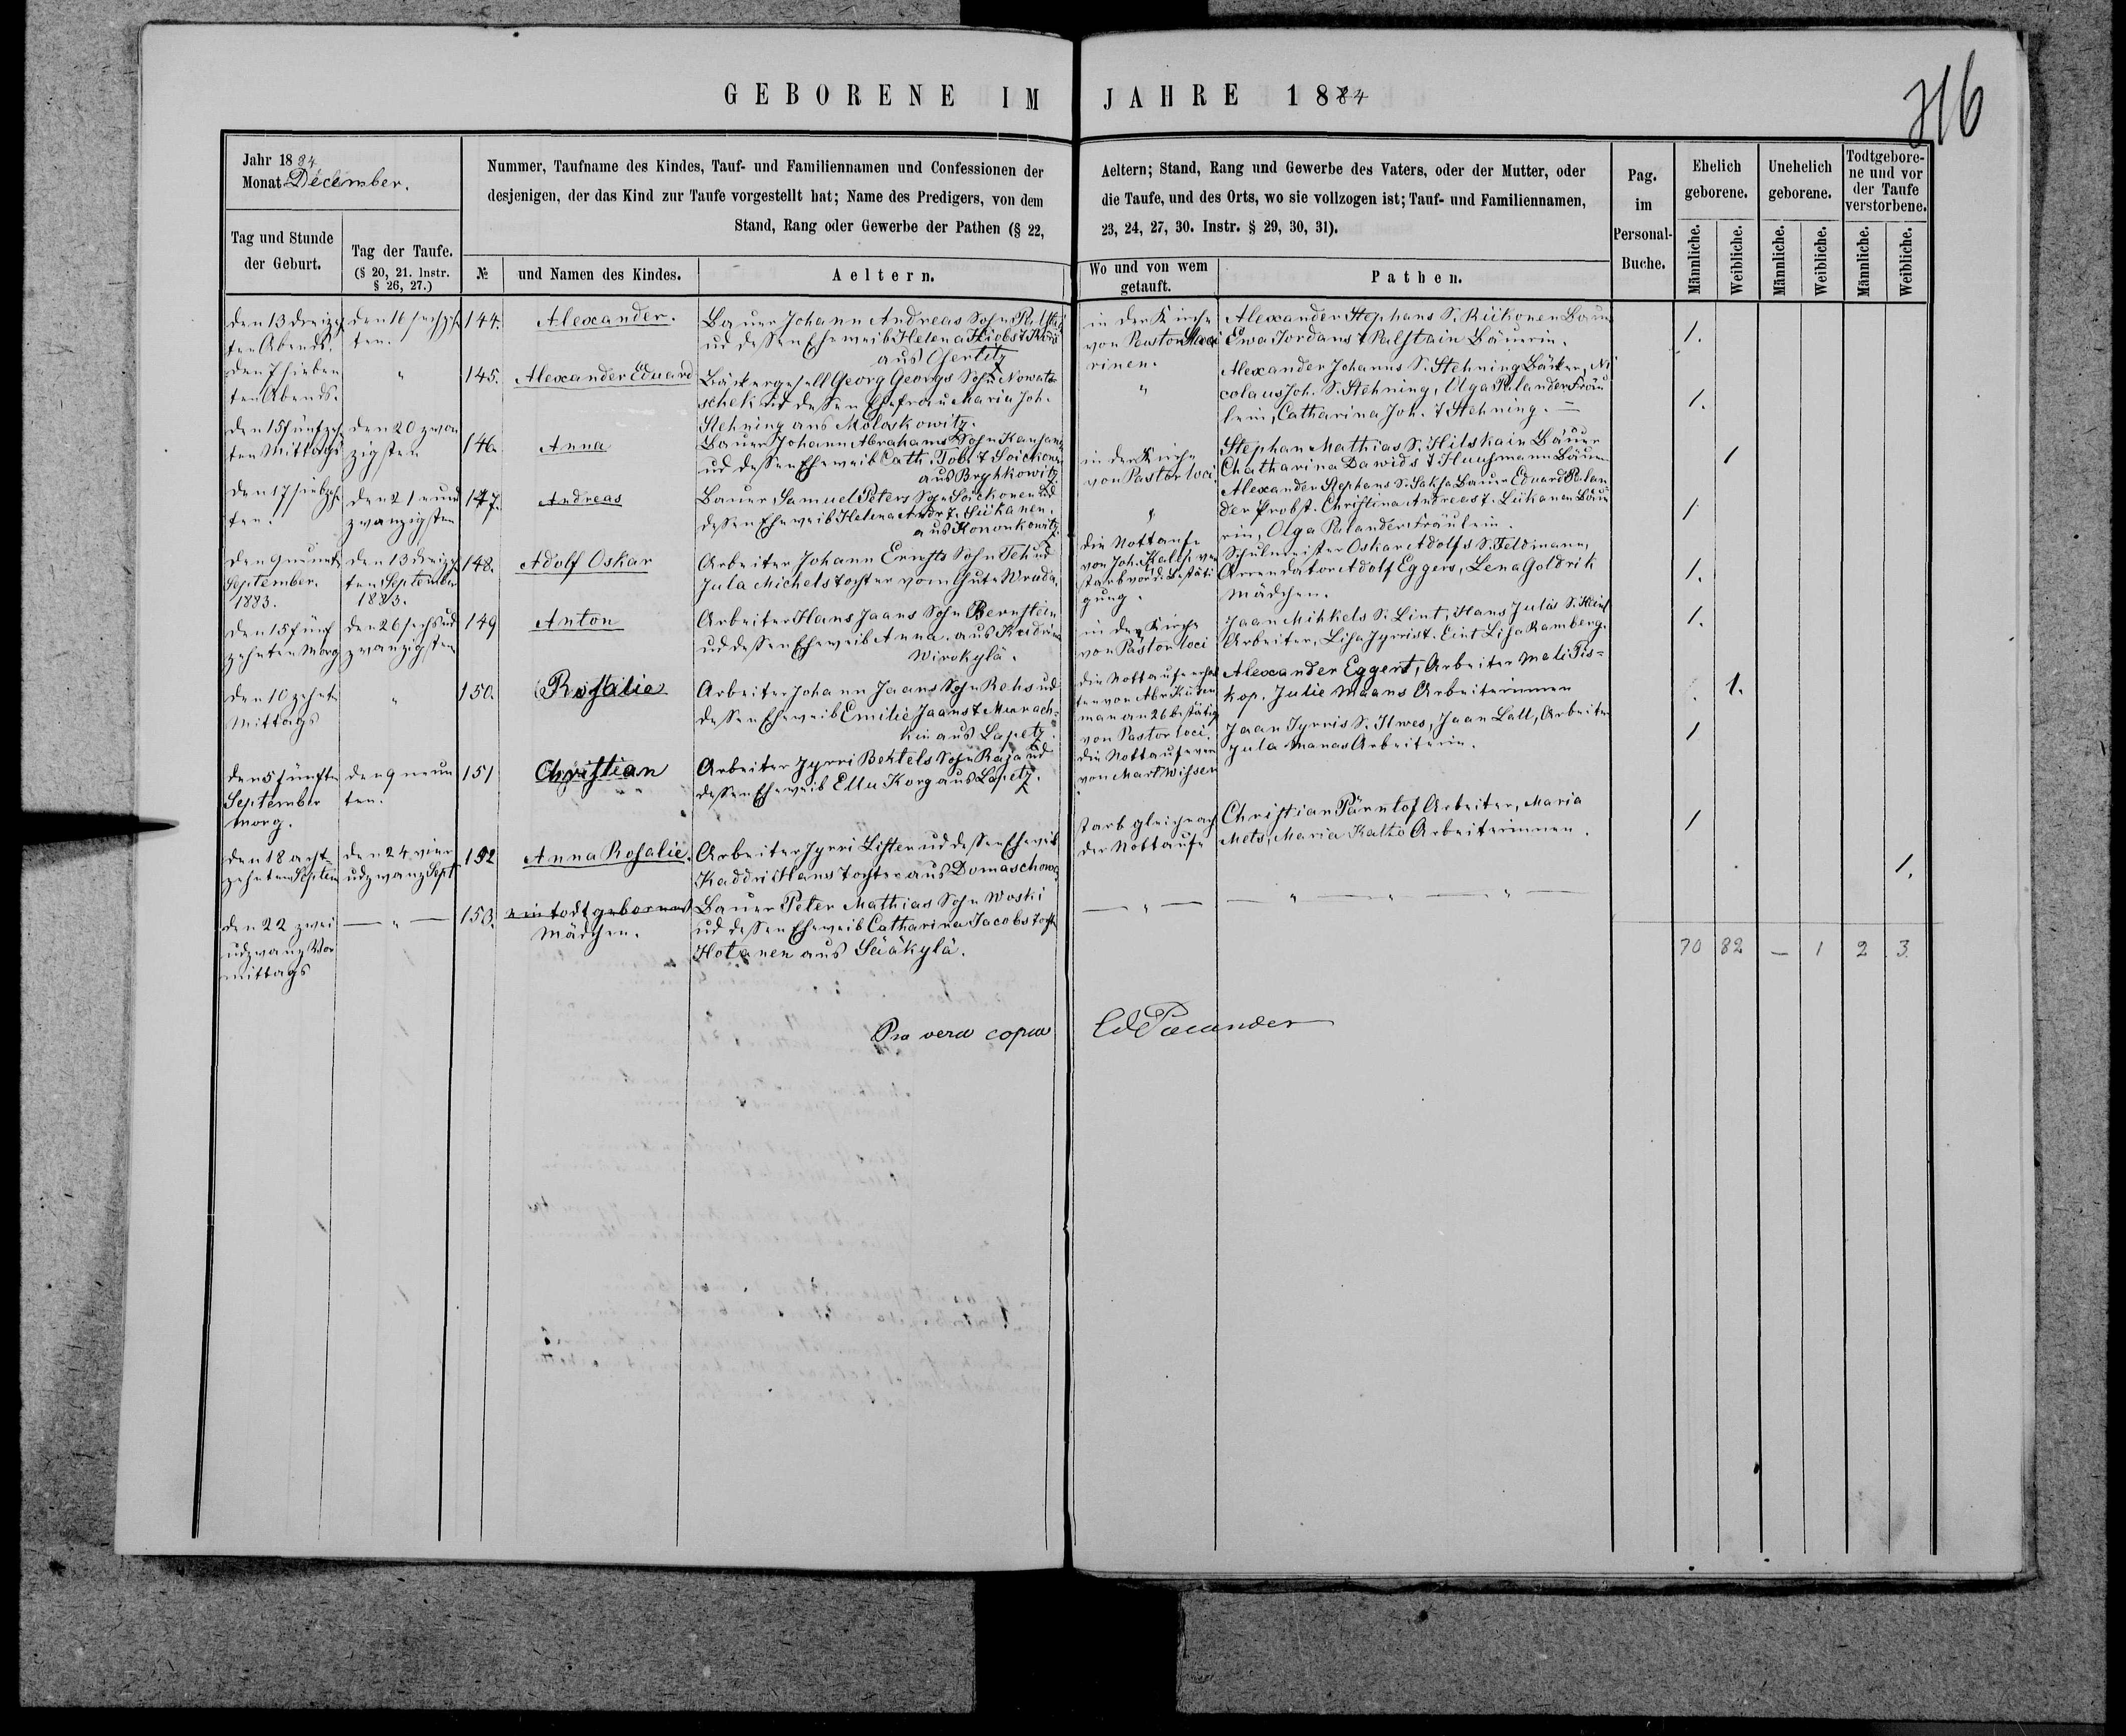 GEBORENE IM JAHRE 1884
316
Jahr 1884
Monat December.
Nummer, Taufname des Kindes, Tauf- und Familiennamen und Confessionen der
desjenigen, der das Kind zur Taufe vorgestellt hat; Name des Predigers, von dem
Stand, Rang oder Gewerbe der Pathen (§ 22,
Aeltern; Stand, Rang und Gewerbe des Vaters, oder der Mutter, oder
die Taufe, und des Orts, wo sie vollzogen ist; Tauf- und Familiennamen,
23, 24, 27, 30. Instr. § 29, 30, 31).
Pag.
im
Personal-
Buche.
Ehelich
geborene.
Unehelich
geborene.
Todtgebore-
ne und vor
der Taufe
verstorbene.
Tag und Stunde
der Geburt.
Tag der Taufe.
(§ 20, 21. Instr.
§ 26, 27.)
№
und Namen des Kindes.
Aeltern.
Wo und von wem
getauft.
Pathen.
Männliche.
Weibliche.
Männliche.
Weibliche.
Männliche.
Weibliche.
den 13 dreizeh
ten Abends.
den 16 sechzeh
ten.
144.
Alexander.
Bauer Johann Andreas Sohn
ud dessen Eheweib Helena
aus
in der Kirche
von Pastor
Alexander Stephans S. Riikonen Bauer
Ewa Jordans t Ralstain Bäuerin.
1.
den 7 sieben
ten Abends.
"
145.
Alexander Eduard
Bäckergesell Georg Georgs Sohn Nowat
schek ud dessen Ehefrau Maria Joh.
Stehning aus Moloskowitz.
rinen.
"
Alexander Johanns S. Stehning Bäcker, Ni
colaus Joh. S. Stehning, Olga Palander Fräu
lein, Catharina Joh. t Stehning.
1.
den 15 fünfzeh
ten Mittags
den 20 zwan
zigsten
146.
Anna
Bauer Johann Abrahams Sohn
ud dessen Eheweib Cath. Tob. t Soickonen
aus Bryhkowitz.
in der Kirche
von Pastor loci.
Stephan Mathias S. Hilskain Bauer
Chatharina Dawids t Huuhmann Bäuerin
1
den 17 siebzeh
ten.
den 21 einund
zwanzigsten
147.
Andreas
Bauer Samuel Peters Sohn Soickonen ud
dessen Eheweib Helena Andr. t.
aus Kononkowitz.
"
Alexander Stephans S. Saksa Bauer Eduard Palan-
der Probst. Christina Andreas t. Liikanen Bäue
rin, Olga Palander Fräulein.
1
den 9 neunt
September.
1883.
den 13 dreizeh
ten September
1883.
148.
Adolf Oskar
Arbeiter Johann Ernsts Sohn ud
Jula Michels tochter vom Gute Wruda.
die Nottaufe
von Joh. Kalest ver
starb vor d. Bestäti
gung.
Schulmeister Oskar Adolfs S. Feldmann,
Arrendator Adolf Eggers, Lena Goldrik
Mädchen.
1.
den 15 fünf
zehnten Morg
den 26 sechs ud
zwanzigsten
149
Anton
Arbeiter Hans Jaans Sohn Bernstein
ud dessen Eheweib Anna. aus
Wirokylä.
in der Kirche
von Pastor loci
Jaan Mihkels S. Lint, Hans Julis S.
Arbeiter, Lisa Jyrris t. Lint Lisa Ramberg.
1.
den 10 zehnte
Mittags
"
150.
Rosalie
Arbeiter Johann Jaans Sohn Rehs ud
dessen Eheweib Emilie Jaans t
kin aus Lapetz.
die Nottaufe
man an 26 bestätig
von Pastor loci.
Alexander Eggert, Arbeiter Mali Pis-
kop. Julie Maans Arbeiterinnen
1.
den 5 fünfte
September
Morg.
den 9 neun
ten.
151
Christian
Arbeiter Jyrri Behtels Sohn Raja ud
dessen Eheweib Ellu Korg aus Lapetz.
die Nottaufe
von Mart Wihsen
Jaan Jyrris S. Ilwes, Jaan Lall, Arbeiter
Jula Manas Arbeiterin.
1
den 18 acht
zehnten Septem
den 24 vier
udzwanz Sept
152
Anna Rosalie.
Arbeiter Jyrri Listen ud dessen Eheweib
Kaddri Hans tochter aus Domaschowa
starb gleich nach
der Nottaufe
Christian Pärntof Arbeiter, Maria
Mets, Maria Kalso Arbeiterinnen.
1
den 22 zwei
udzwanz Vor
mittags
— " —
153.
ein todtgebornes
Mädchen.
Bauer Peter Mathias Sohn Woski
ud dessen Eheweib Catharina Jacobs tocht
Hotanen aus Sääkylä.
— " — — " — " — " —
1.
70 82 — 1 2 3.
Pro vera copia Ed Palander